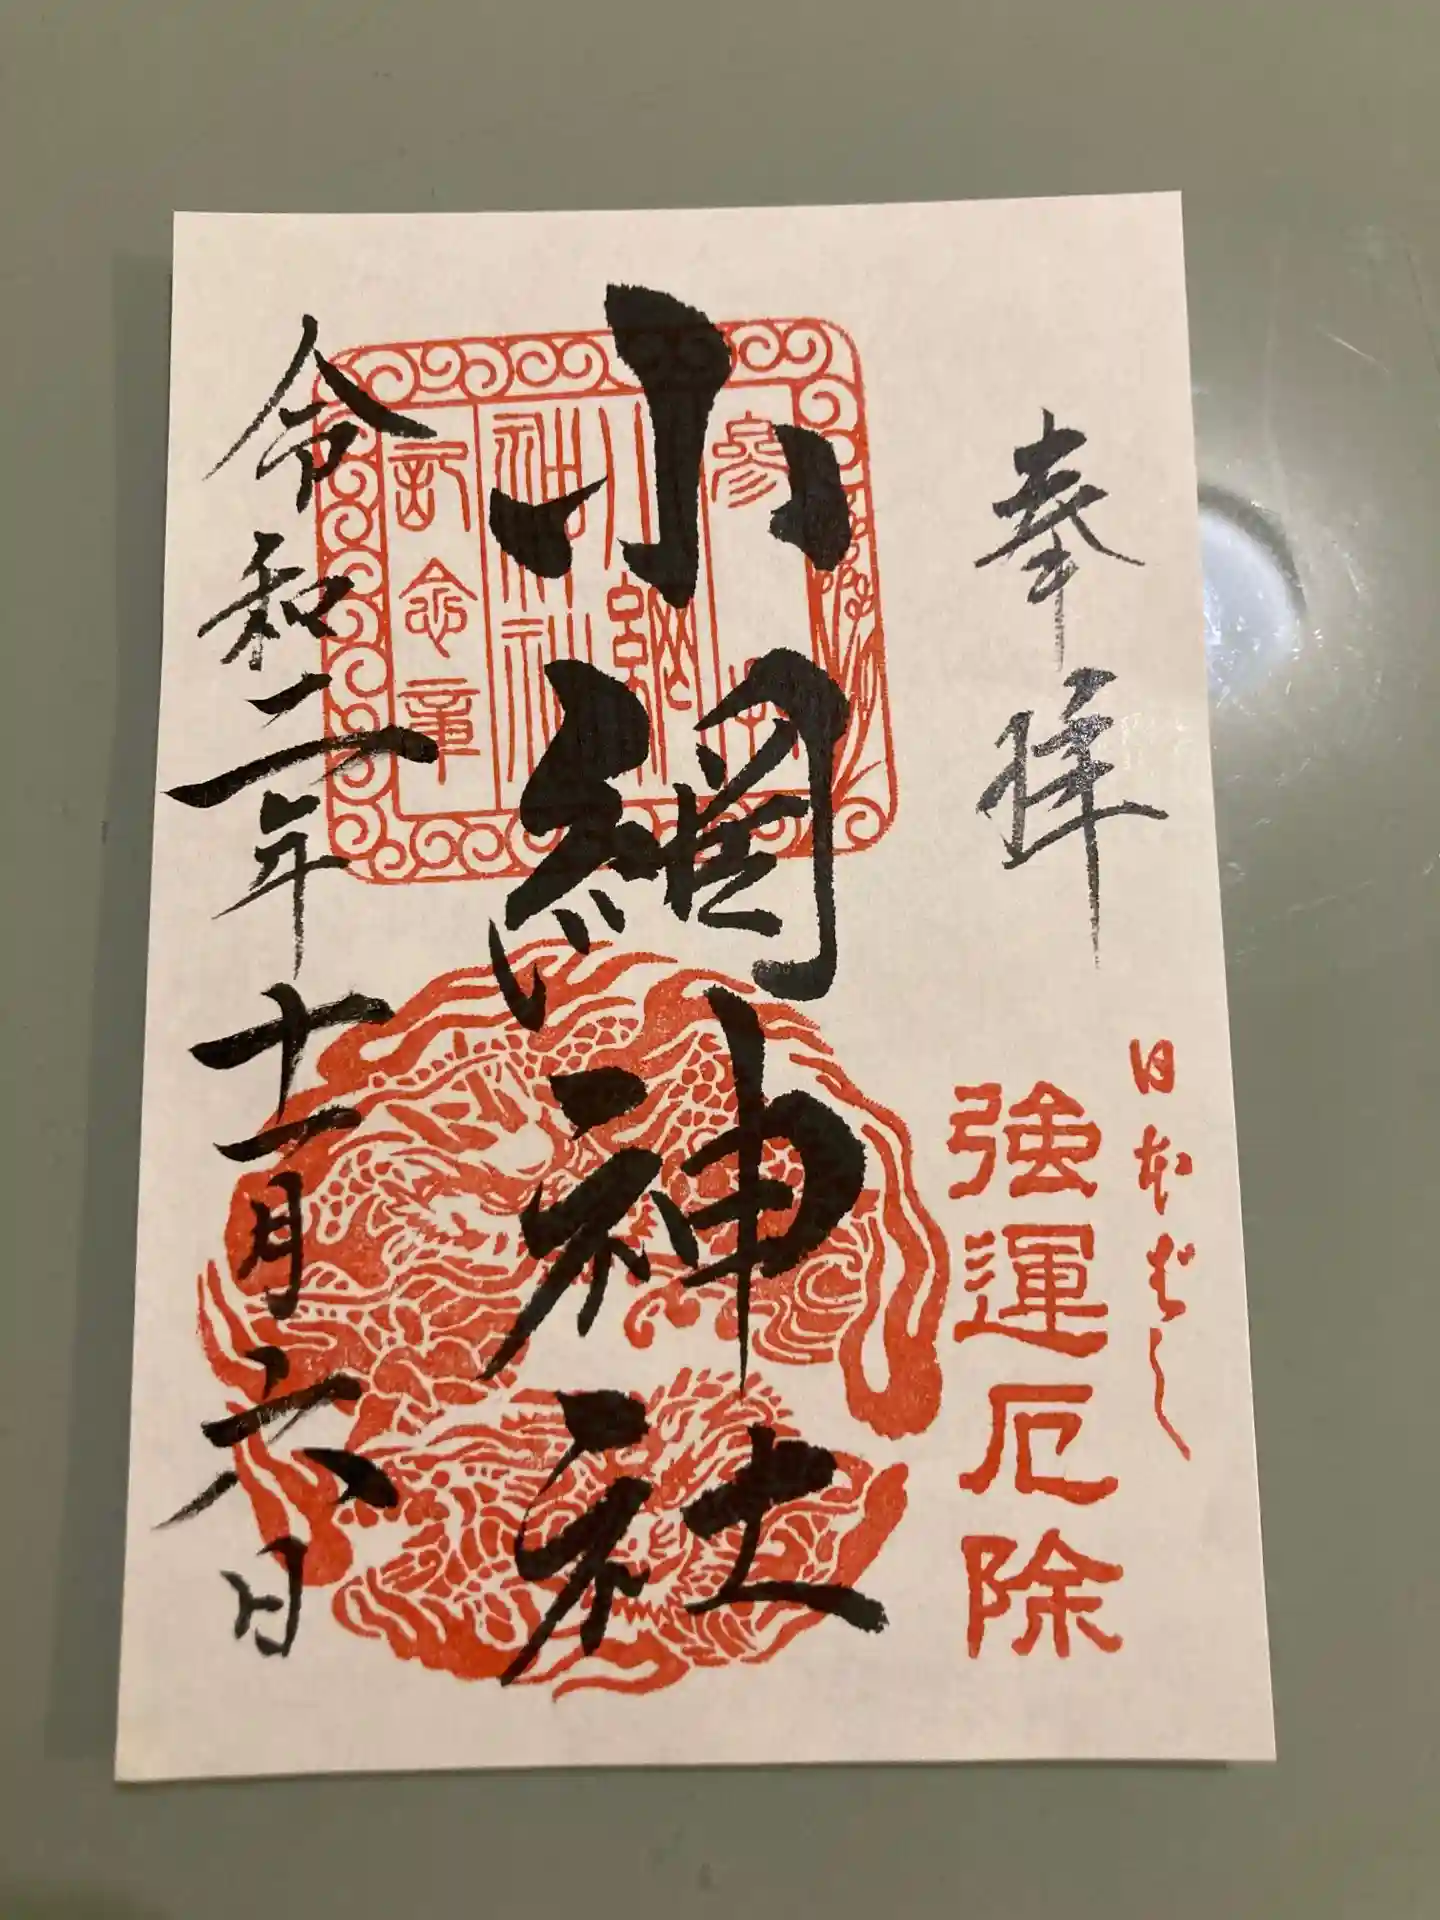 奉拝
日本ばし
強運厄除
小網神社
参拝
小網
神社
記念章
令和二年十一月六日